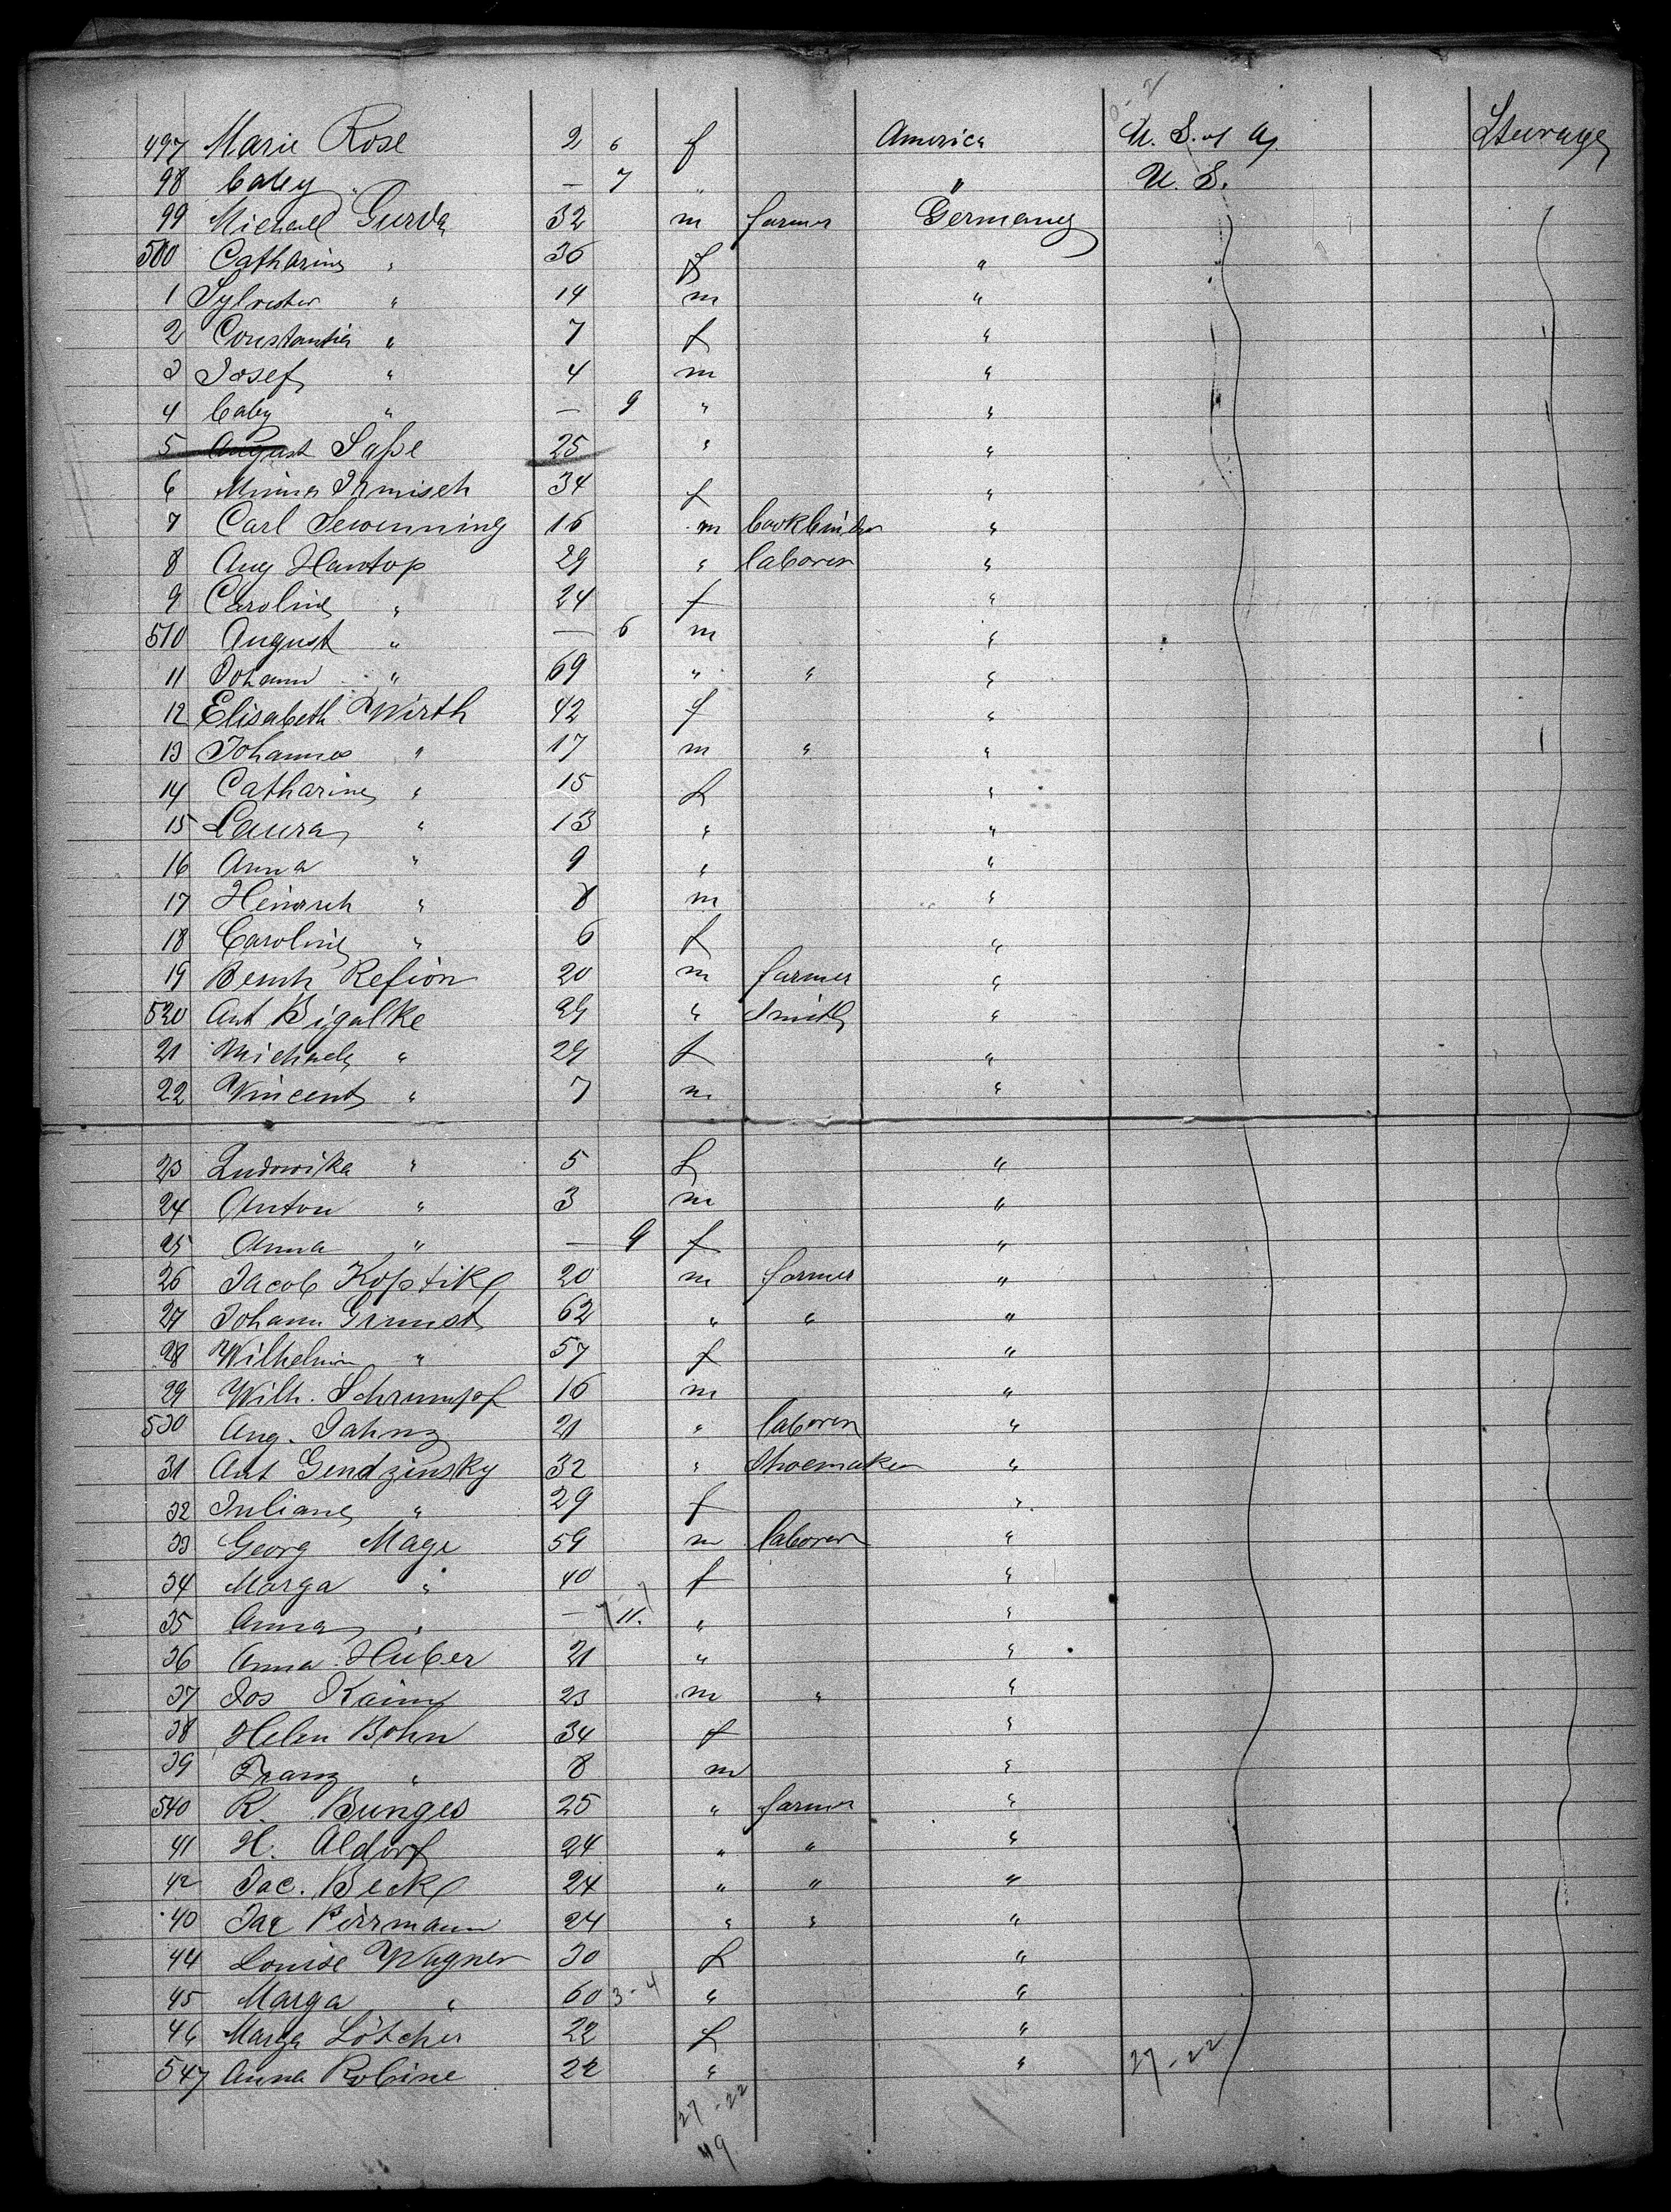 497 Marie Rose 2 6 f America U. S. of A. Steerage
98 baby " — 7 " " U. S.
99 Michael Gurda 32 m farmer Germany
500 Catharine " 36 f "
1 Sylvester " 14 m "
2 Constantia " 7 f "
3 Josef " 4 m "
4 baby " — 9 " "
5 August Saße 25 " "
6 Minna Irmisch 34 f "
7 Carl Sewenning 16 m bookbinder "
8 Aug Hantop 29 " laborer "
9 Caroline " 24 f "
510 August " — 6 m "
11 Johann " 69 " " "
12 Elisabeth Wirth 42 f "
13 Johannes " 17 m " "
14 Catharine " 15 f "
15 Laura " 13 " "
16 Anna " 9 " "
17 Heinrich " 8 m "
18 Caroline " 6 f "
19 Bernh Refion 20 m farmer "
520 Ant Bigalke 29 " Smith "
21 Michaela " 29 f "
22 Vincent " 7 m "
23 Ludowika " 5 f "
24 Anton " 3 m "
25 Anna " — 9 f "
26 Jacob Koßtike 20 m farmer "
27 Johann Grunst 62 " " "
28 Wilhelmin " 57 f "
29 Wilh. Schrumpf 16 m "
530 Aug. Jahnz 21 " laborer "
31 Ant Gendzinsky 32 " Shoemaker "
32 Juliane " 29 f "
33 Georg Mage 59 m laborer "
34 Marga " 40 f "
35 Anna " — 11. " "
36 Anna Huber 21 " "
37 Jos Kainz 23 m " "
38 Helen Bohn 34 f "
39 Franz " 8 m "
540 R. Bunges 25 " farmer "
41 H. Aldorf 24 " " "
42 Jac. Beck 24 " " "
40 Jac Birrmann 24 " " "
44 Louise Wagner 30 f "
45 Marga " 60 3-4 " "
46 Marga Lötcher 22 f "
547 Anna Robine 22 " " 27-22
27-22
49